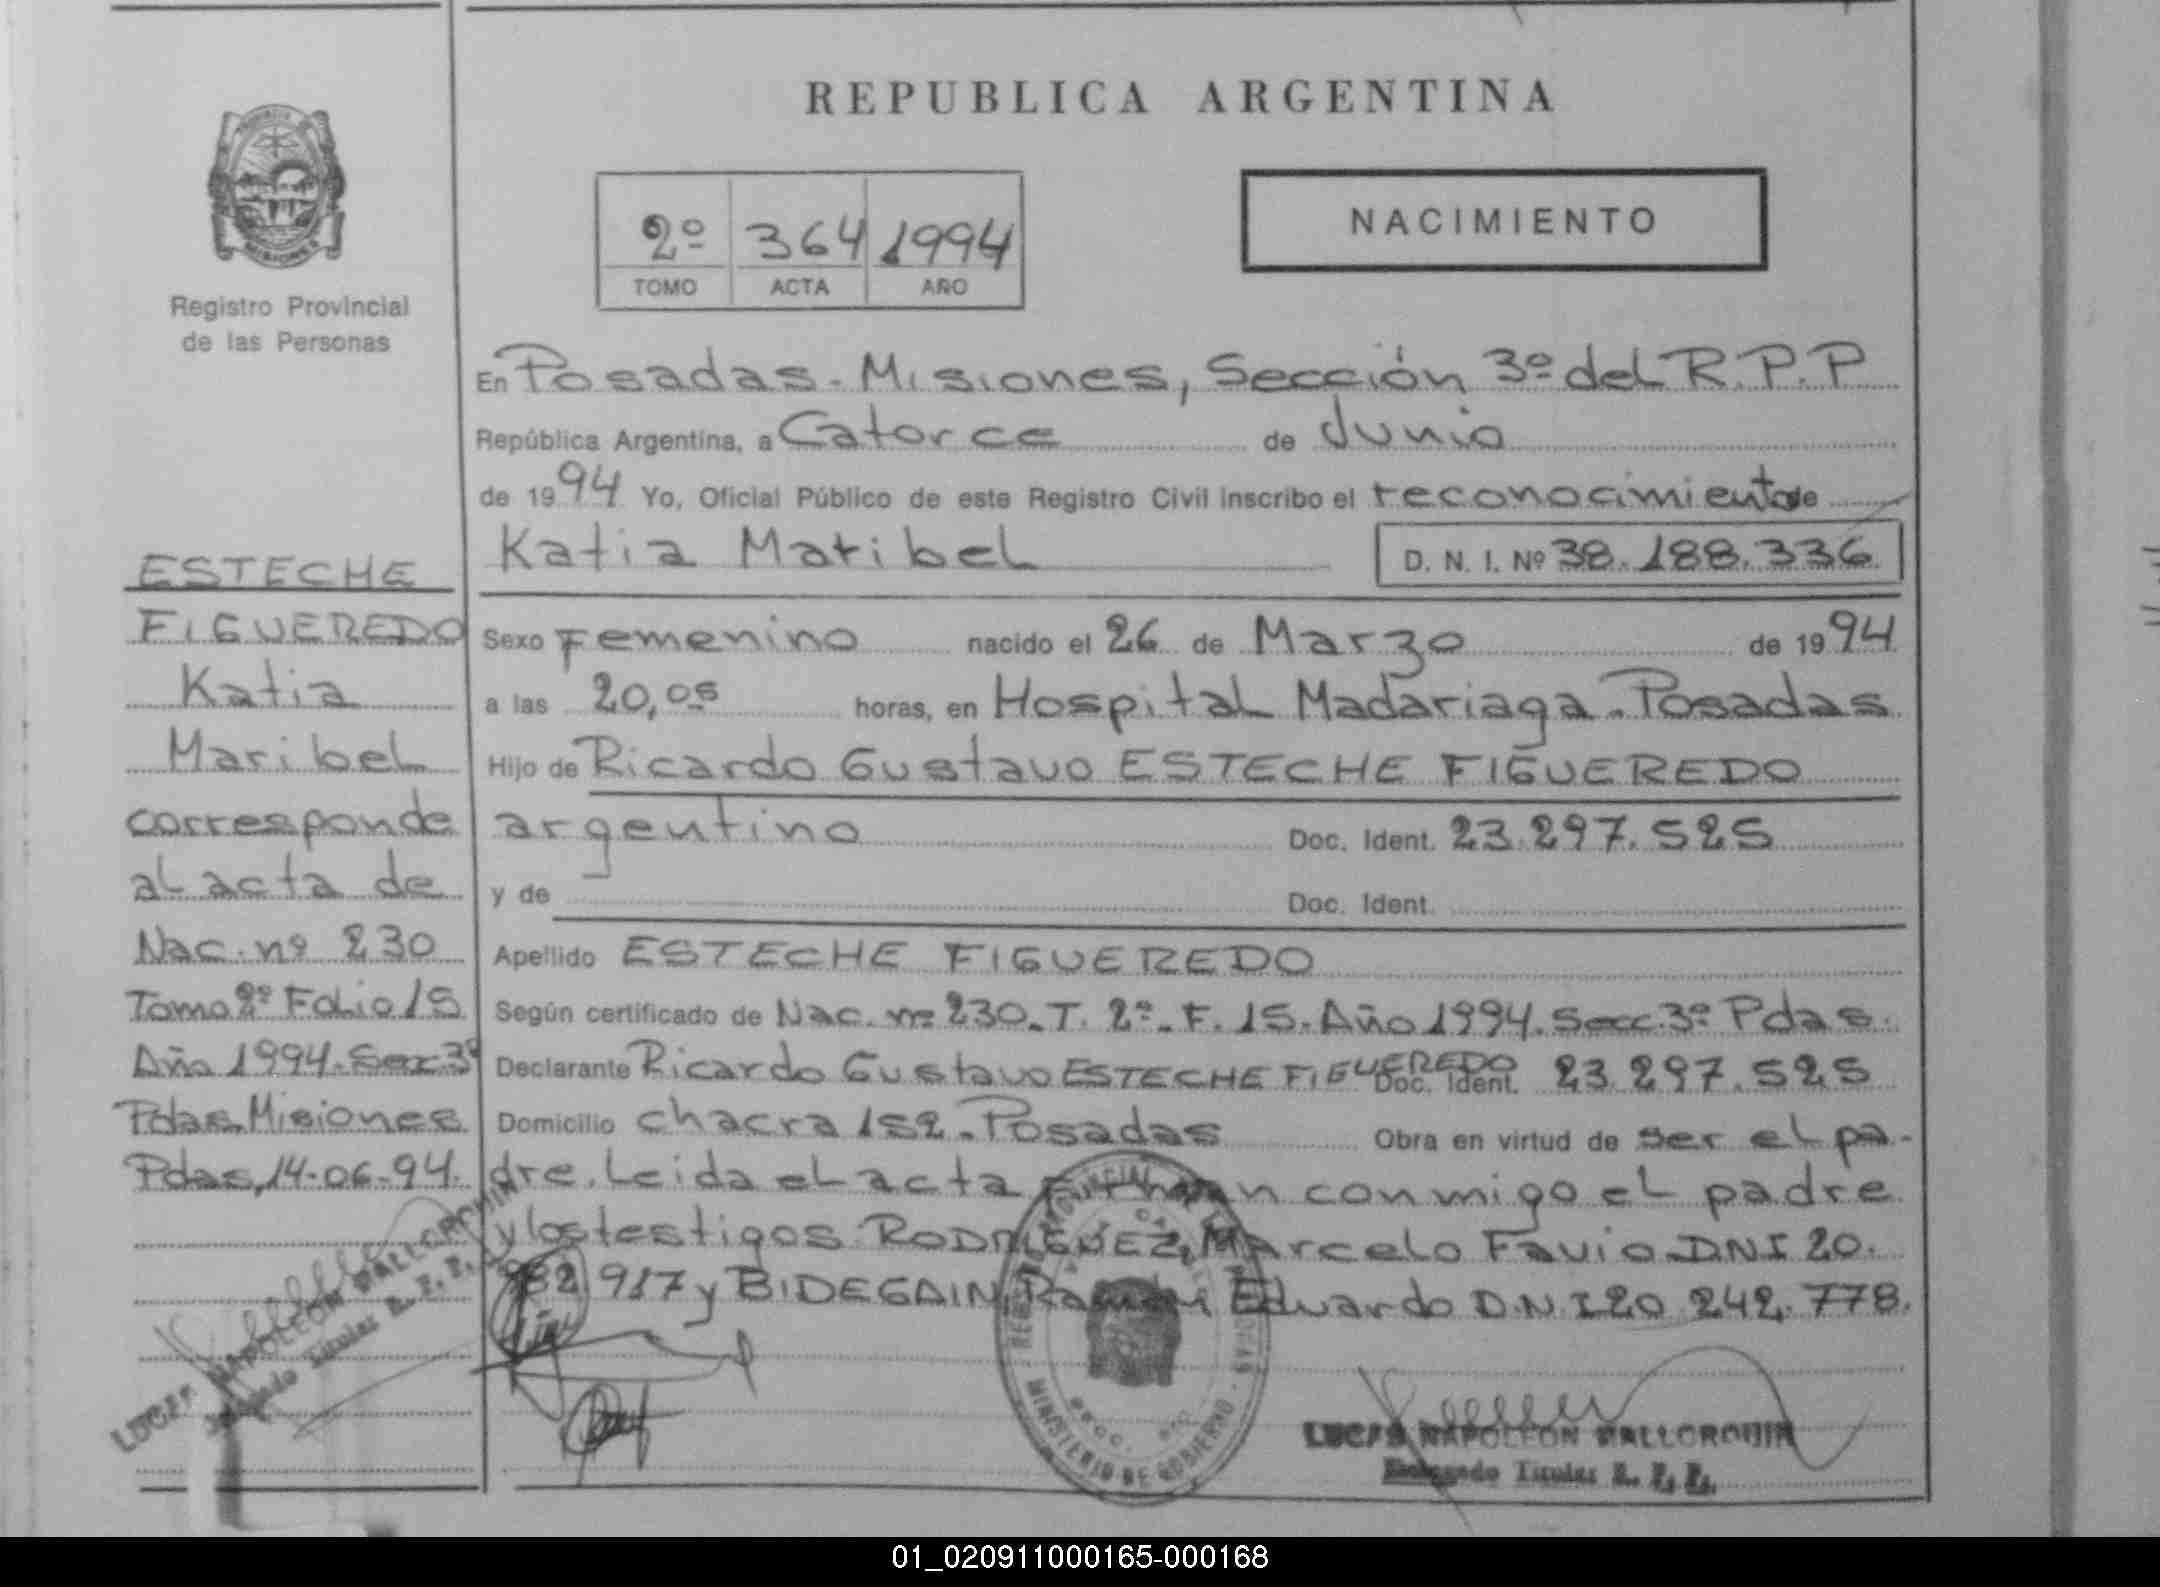 REPUBLICA ARGENTINA
Registro Provincial
de las Personas
2º 364 1994
TOMO ACTA AÑO
NACIMIENTO
En Posadas - Misiones, Sección 3º del R.P.P
República Argentina, a Catorce de Junio
de 1994 Yo, Oficial Público de este Registro Civil inscribo el reconocimiento de
Katia Maribel D. N. I. Nº 38.188.336
Sexo Femenino nacido el 26 de Marzo de 1994
a las 20,05 horas, en Hospital Madariaga - Posadas
Hijo de Ricardo Gustavo ESTECHE FIGUEREDO
argentino Doc. Ident. 23.297.525
y de Doc. Ident.
Apellido ESTECHE FIGUEREDO
Según certificado de Nac. nº 230 - T. 2º - F. 15 - Año 1994. Secc. 3º Pdas.
Declarante Ricardo Gustavo ESTECHE FIGUEREDO Doc. Ident. 23.297.525
Domicilio chacra 152 - Posadas Obra en virtud de ser el pa-
dre. Leida el acta firman conmigo el padre
y los testigos RODRIGUEZ, Marcelo Favio DNI 20.
982 917 y BIDEGAIN, Ramón Eduardo D.N.I 20 242.778.
ESTECHE
FIGUEREDO
Katia
Maribel
corresponde
al acta de
Nac. nº 230
Tomo 2º Folio 15
Año 1994. Secc. 3º
Pdas. Misiones
Pdas, 14-06-94.
NAPOLEON MALLORQUIN
Titular R. P. P.
MINISTERIO DE GOBIERNO
LUCAS NAPOLEON MALLORQUIN
Delegado Titular R. P. P.
01_020911000165-000168